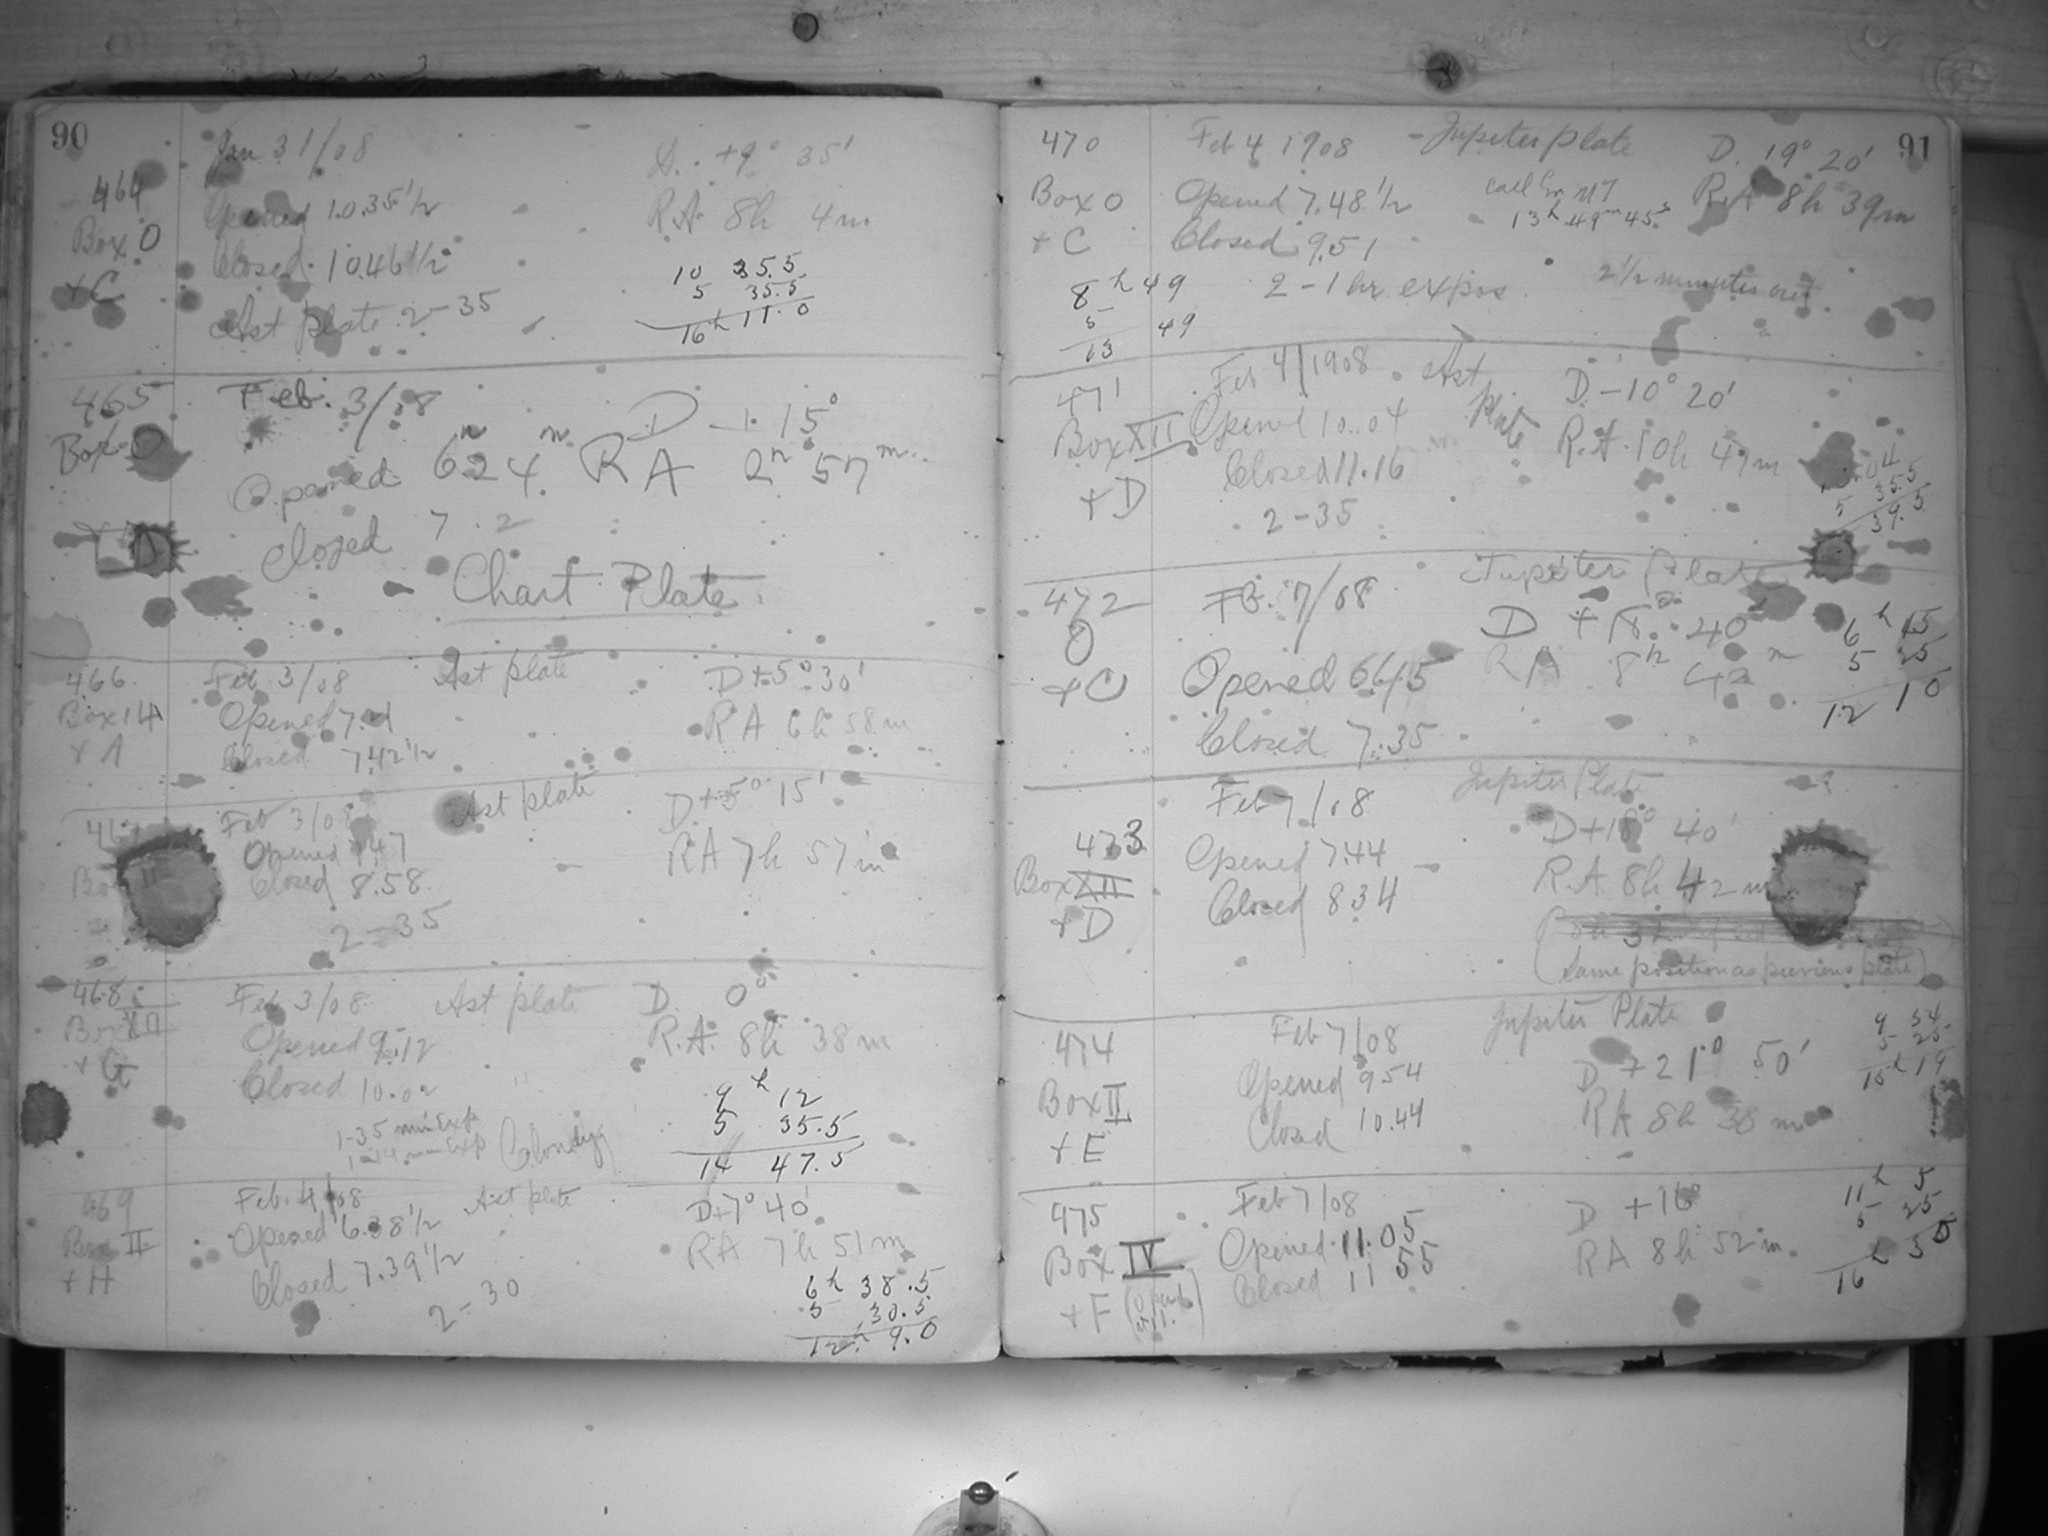 90
464
Box O
+C
Jan 31/08
Opened 10.35 1/2
Closed 10.46 1/2
Ast plate 2-35
D. +9° 35'
R.A. 8h 4m
10 35.5
5 35.5
16h 11.0
465
Box O
+D
Feb. 3/08
D - 1. 15°
Opened 6h 24m RA 2h 57m
Closed 7.2
Chart Plate
466
Box 14
+ A
Feb 3/08 Ast plate D+5° 30'
Opened 7.21 RA 6h 58m
Closed 7.42 1/2
467
Feb 3/08 Ast plate D+5° 15'
Opened 7.47 RA 7h 57m
Closed 8.58
2-35
468
Box XII
+ G
Feb 3/08 Ast plate D. 0°
Opened 9.12 R.A. 8h 38m
Closed 10.02
1-35 min Exp
1-14 min Exp Cloudy
9h 12
5 35.5
14 47.5
469
Box II
+ H
Feb. 4/08 Ast plate D+7° 40'
Opened 6.38 1/2 RA 7h 51m
Closed 7.39 1/2
2-30
6h 38.5
5 30.5
12h 9.0
91
470
Box O
+ C
Feb 4 1908 - Jupiter plate D. 19° 20'
Opened 7.48 1/2 R.A 8h 39m
Call Gr. MT
13h 49m 45s
Closed 9.51
2-1 hr expos. 2 1/2 minutes out
8h 49
5
13 49
471
Box XII
+ D
Feb 4/1908 Ast Plate D - 10° 20'
Opened 10.04 R.A. 10h 47m
Closed 11.16
2-35
04
5 35.5
39.5
472
O
+ C
Fb. 7/08 Jupiter Plate
D +18° 40'
Opened 6.45 RA 8h 42m
Closed 7.35
6h 45
5 25
12 10
473
Box XII
+ D
Feb 7/08 Jupiter Plate
D+18° 40'
Opened 7.44 R.A. 8h 42m
Closed 8.34
(Same position as previous plate)
474
Box II
+ E
Feb 7/08 Jupiter Plate
Opened 9 54 D +21° 50'
Closed 10.44 RA 8h 38m
9 54
5 25
15h 19
475
Box IV
+ F
Feb 7/08 D +16°
Opened 11.05 RA 8h 52m.
Closed 11 55
11h 5
5 25
16h 30